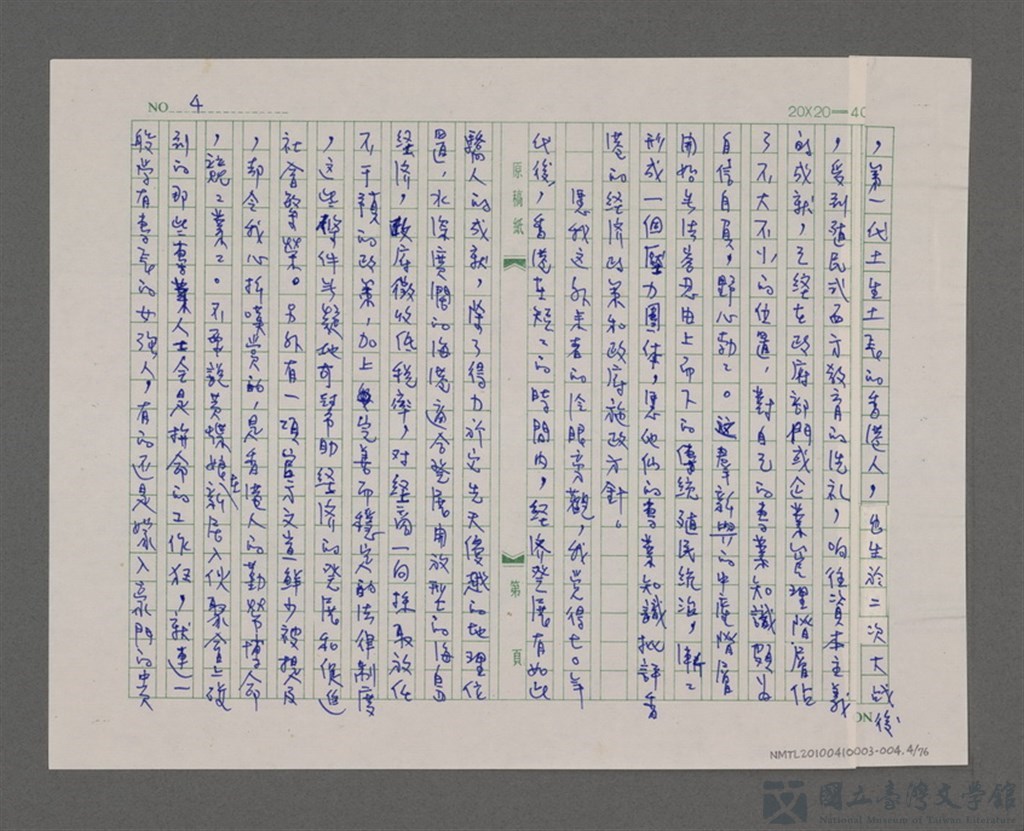 NO 4
20X20=40
，第一代土生土長的香港人，出生於二次大战後
，受到殖民式西方教育的洗礼，响往資本主義
的成就，已經在政府部門或企業管理階層佔
了不大不小的位置，對自己的專業知識頗為
自信自負，野心勃々。这群新興的中產階層
開始無法忍受由上而下的傳統殖民統治，漸々
形成一個壓力團体，憑他们的專業知識批評香
港的經济政策和政府施政方針。
憑我这外來者的冷眼旁觀，我覺得七〇年
代後，香港在短々的時間内，經济發展有如此
原稿紙
第 頁
驕人的成就，除了得力於它先天優越的地理位
置，水深實濶的海港適合發展開放型的海島
經济，政府徵收低稅率，对經商一向採取放任
不干預的政策，加上完善而穩定的法律制度
，这些條件無疑地可幫助經济的發展和促進
社會繁榮。另外有一項官方文宣鮮少被提及
，却令我心折嘆賞的，是香港人的勤勞博命
，兢々業々。不要說黃蝶娘在新居入伙聚會上碰
到的那些專業人士全是拚命的工作狂，就連一
般学有專長的女强人，有的还是嫁入豪門的貴
NO
NMTL20100410003-004.4/76
國立臺灣文學館
National Museum of Taiwan Literature